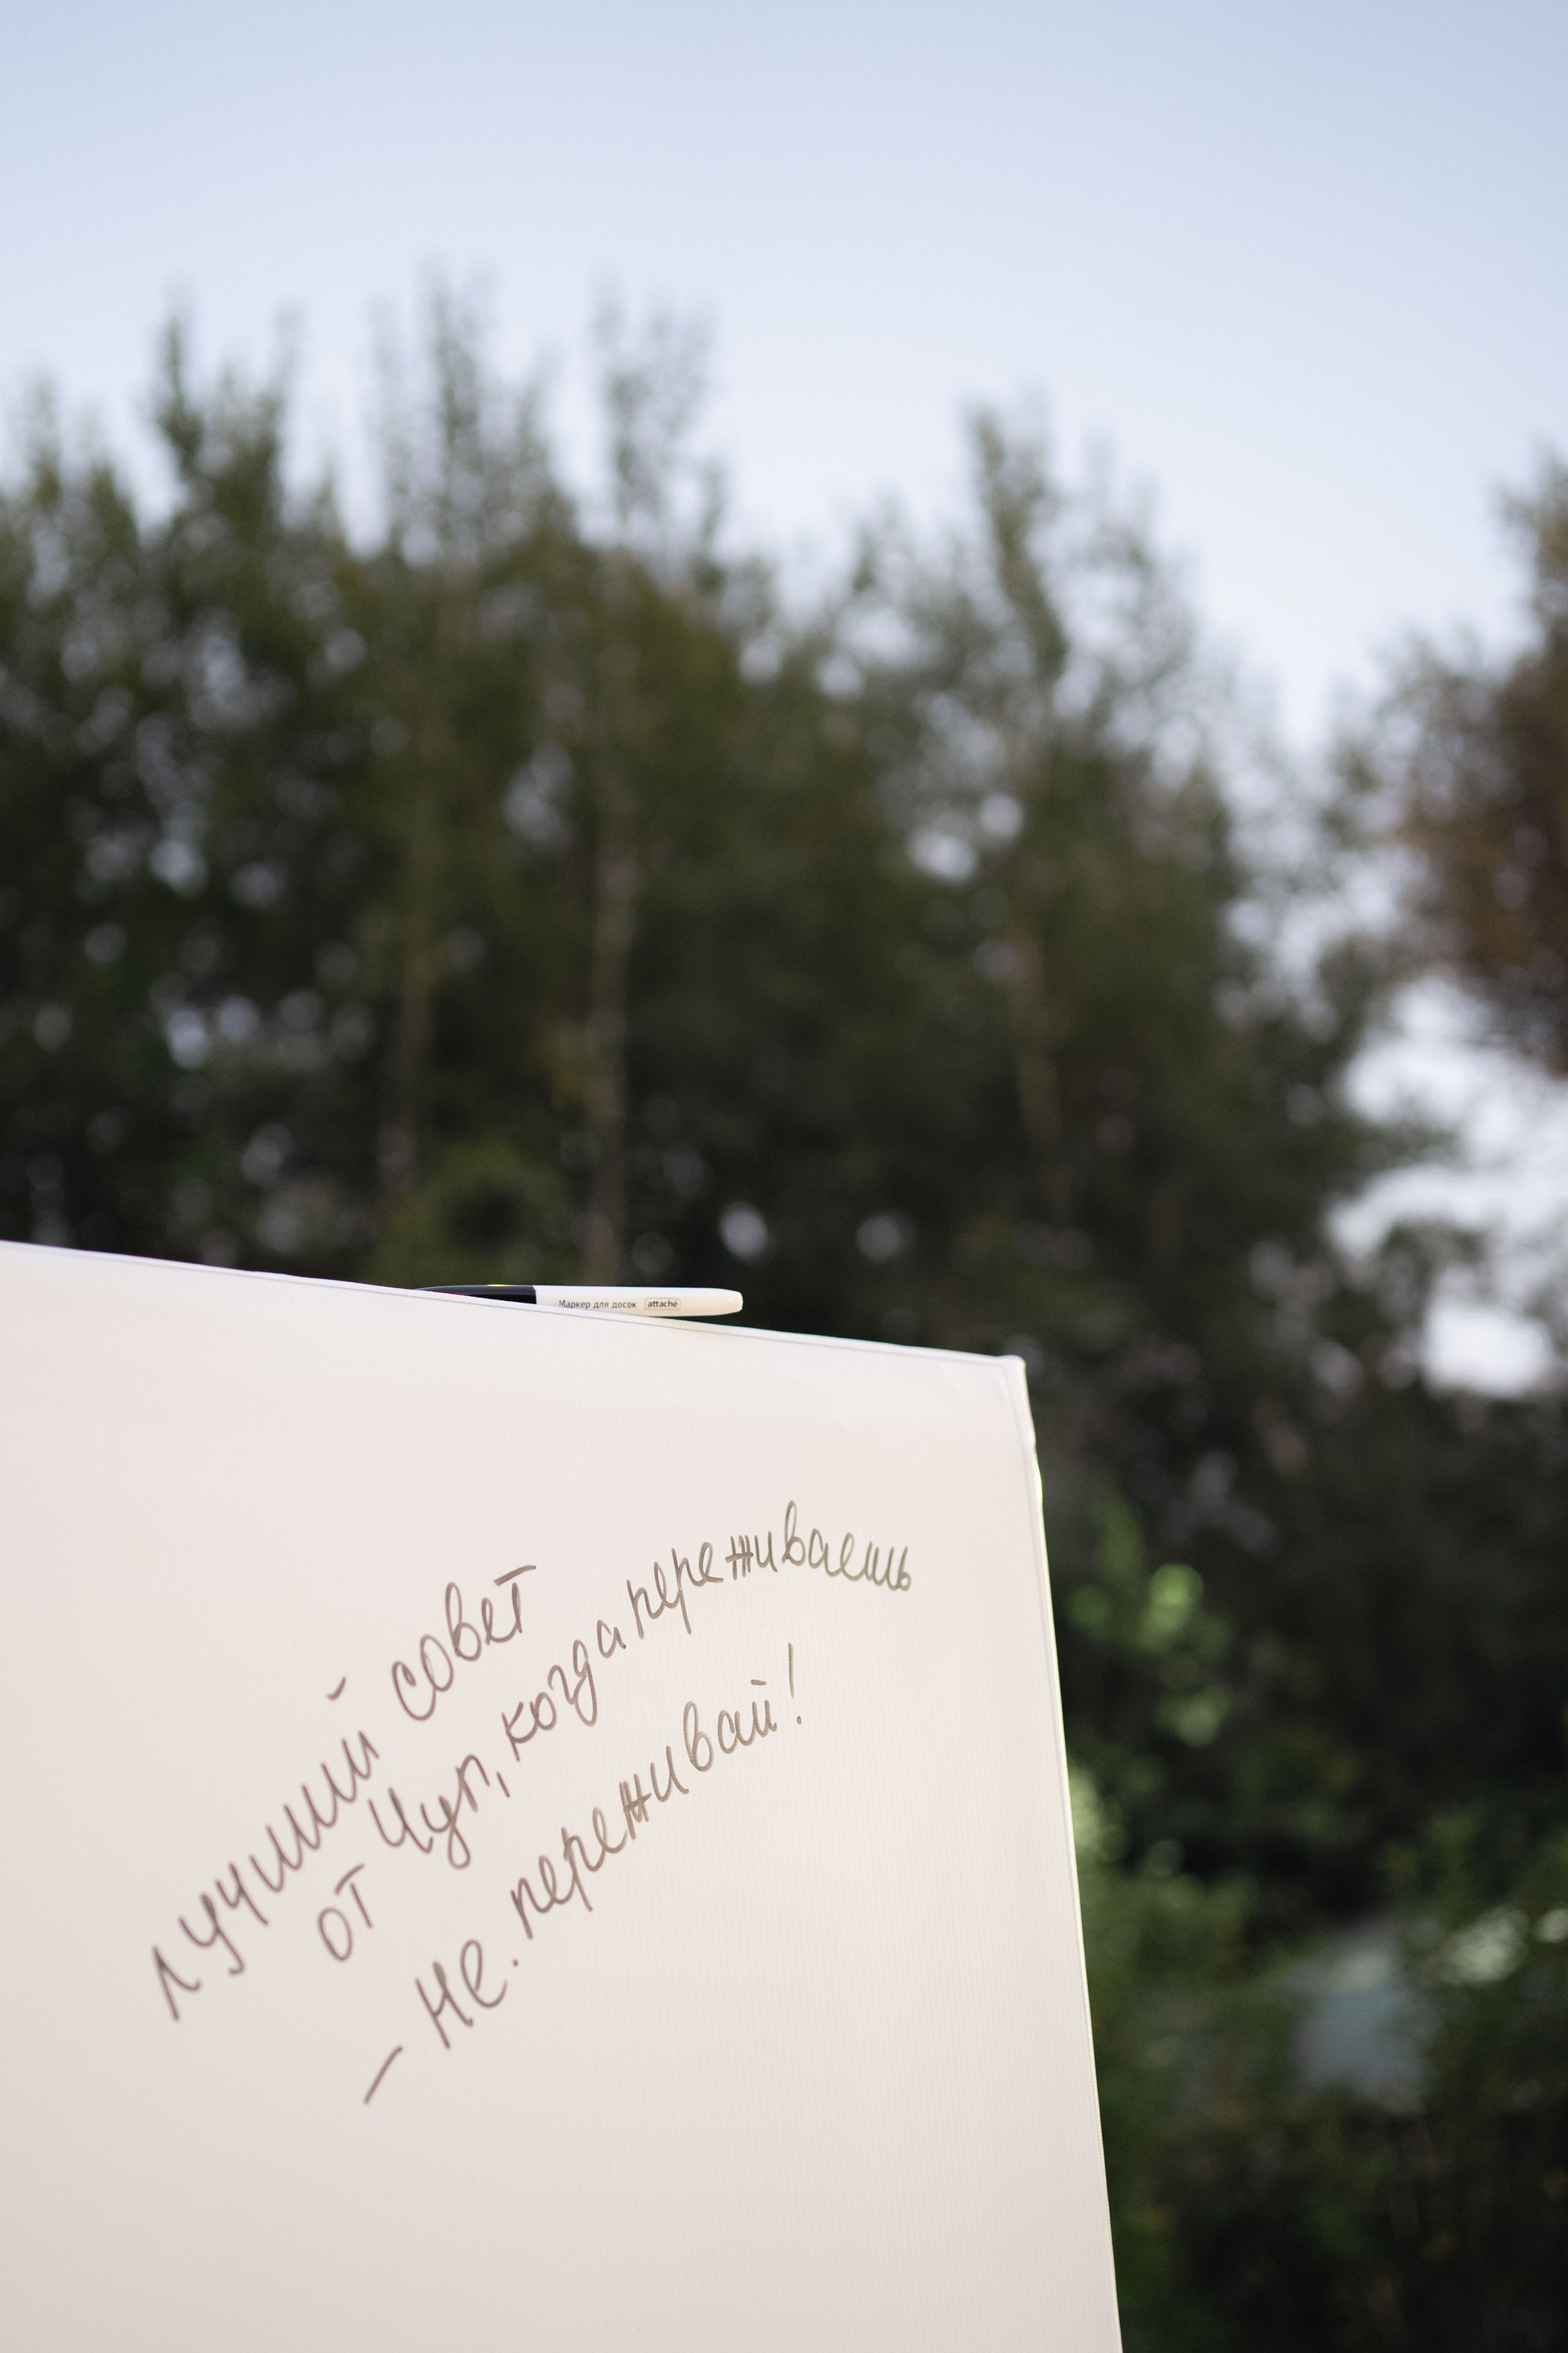 Маркер для досок attaché
лучший совет
от Чуп, когда переживаешь
- не переживай!